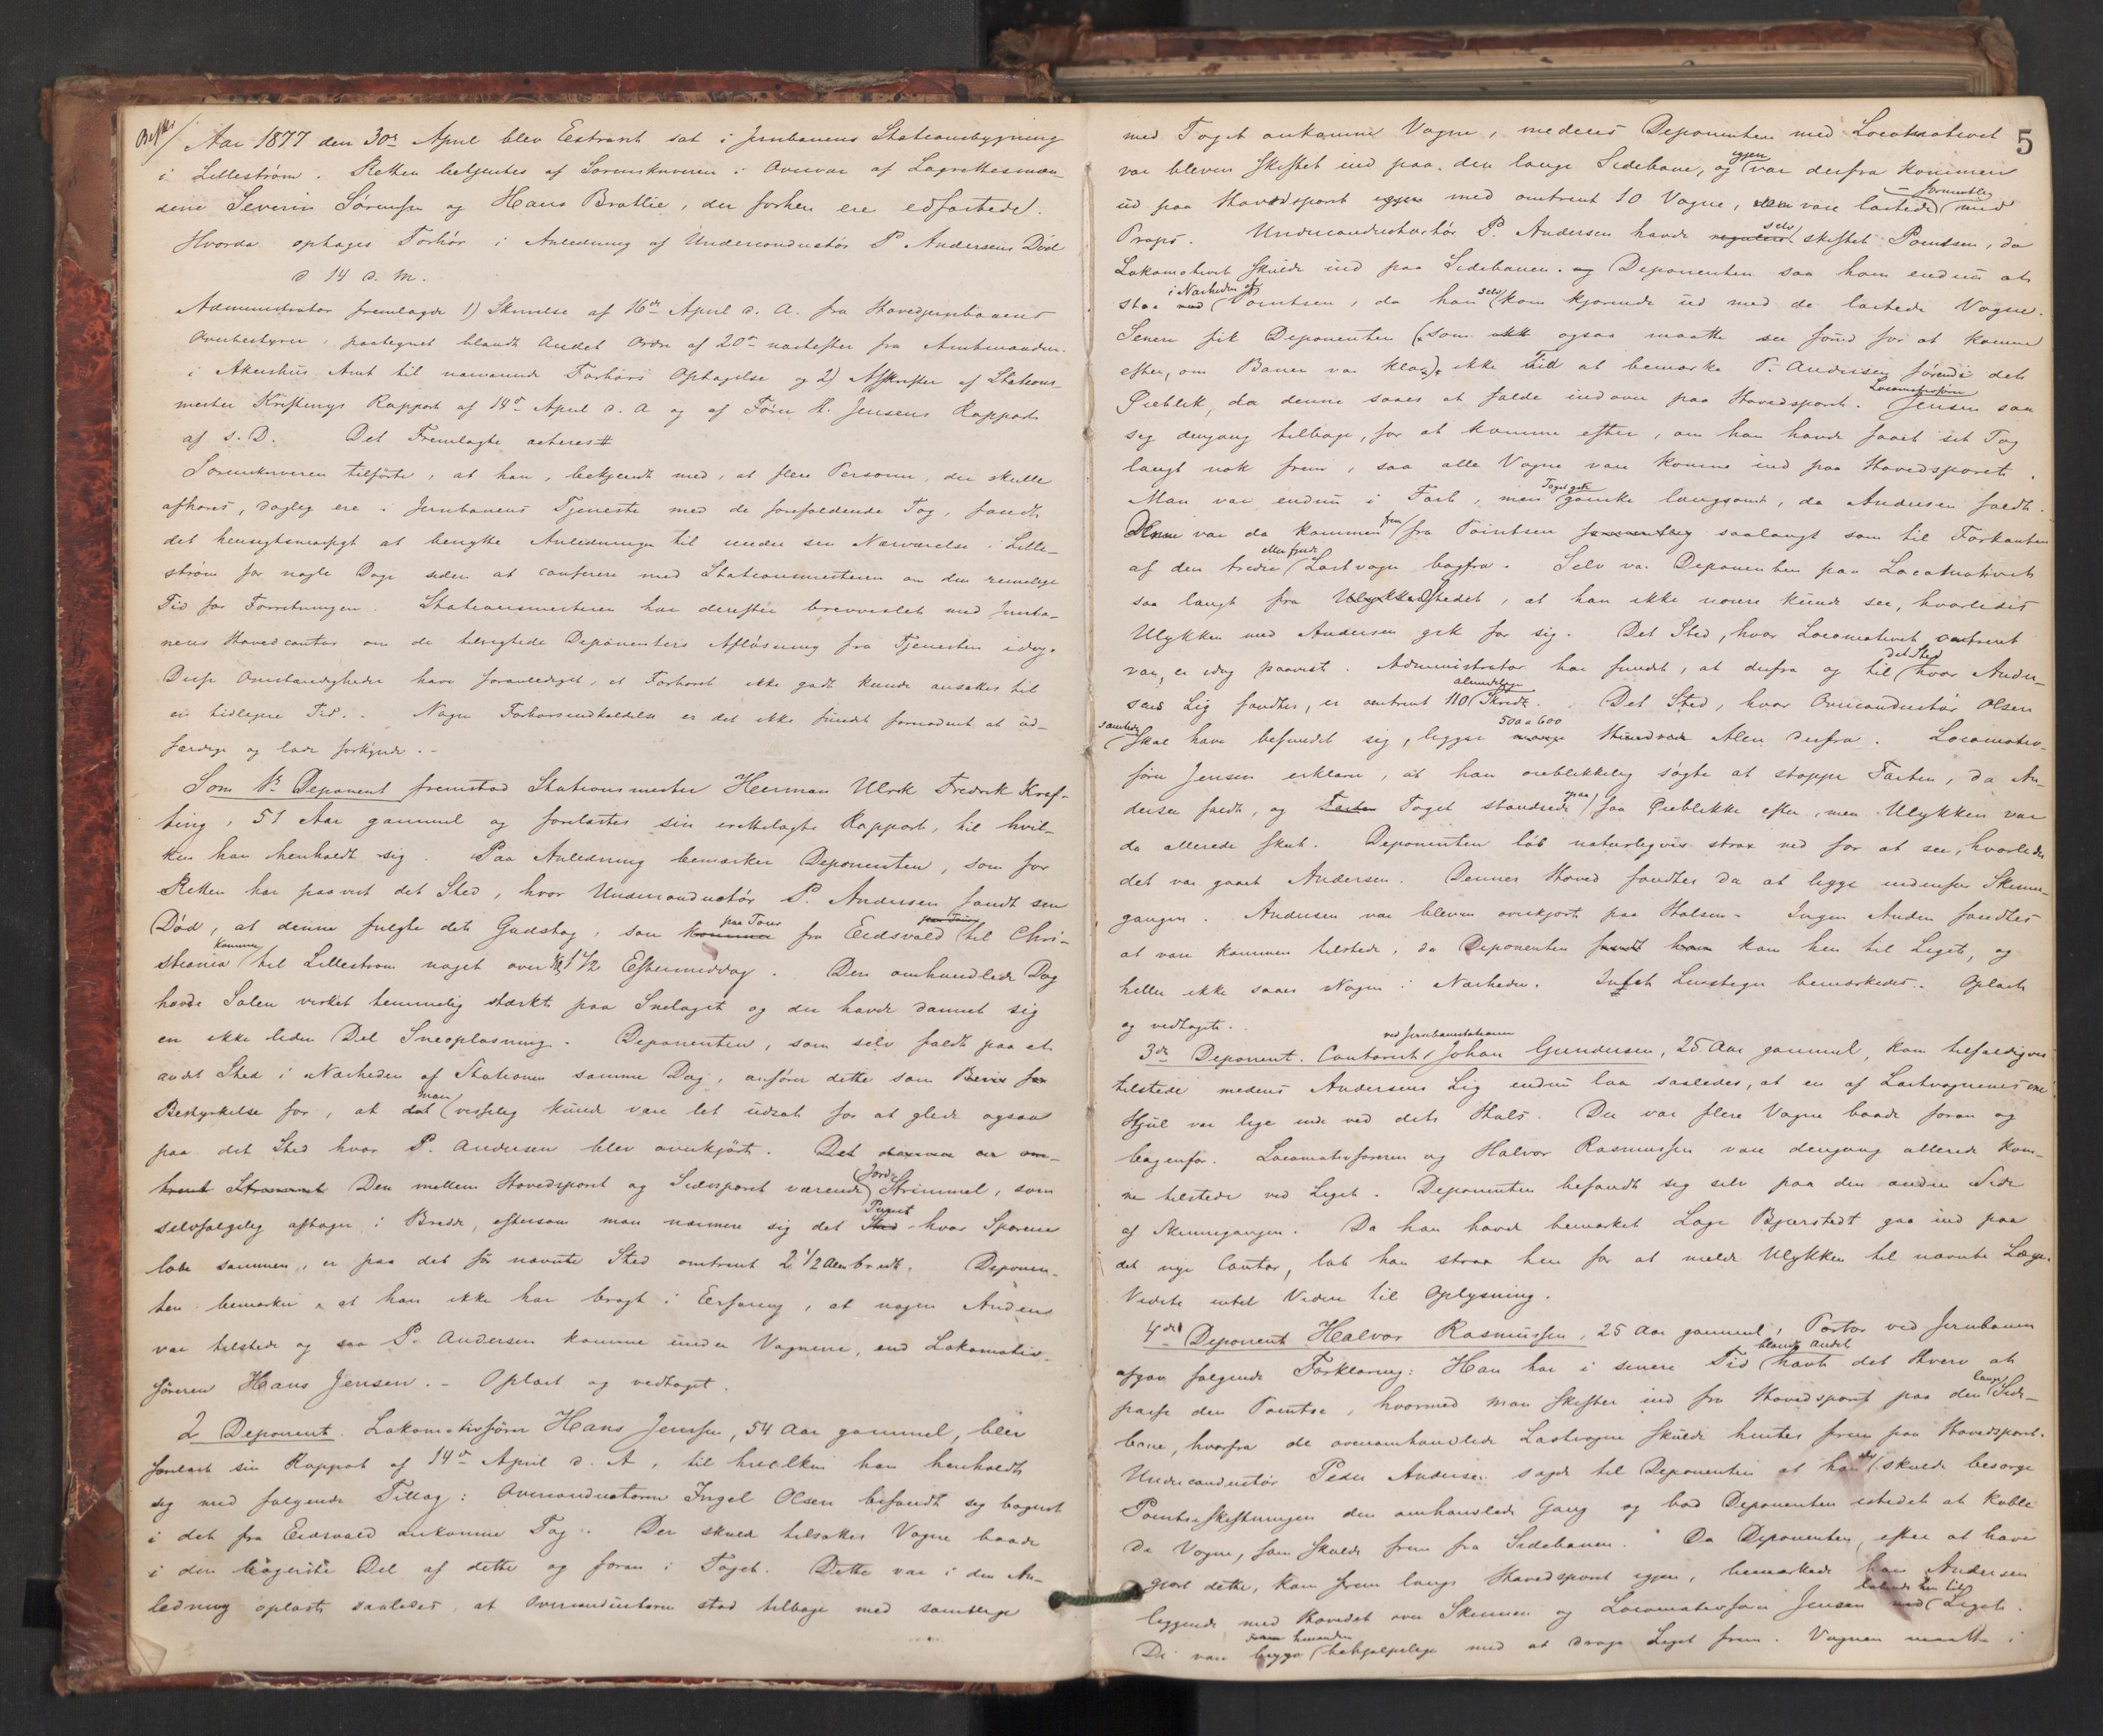 Aar 1877 den 30e April blev Extraret sat i Jernbanens Stationsbygning
i Lillestrøm. Retten betjentes af Sorenskriveren i Overvær af Lagrettesmæn-
dene Severin Sørensen og Hans Brattlie, der forhen ere edfæstede.
Hvorda optages Forhør i Anledning af Underconductør P. Andersens Død
d 14 d. M.
Administrator fremlagde 1) Skrivelse af 16de April d. A. fra Hovedjernbanens
Overbestyrer, paategnet blandt Andet Ordre af 20de næstefter fra Amtmanden
i Akershus Amt til nærværende Forhørs Optagelse og 2) Afskrifter af Stations-
mester Kreftings Rapport af 14de April d. A og af Fører H. Jensens Rapport
af s. D. Det Fremlagte acteres #
Sorenskriveren tilførte, at han, bekjendt med, at flere Personer, der skulle
afhøres, daglig ere i Jernbanens Tjeneste med de forefaldende Tog, fandt
det hensigtsmæssigt at benytte Anledningen til under sin Nærværelse i Lille-
strøm for nogle Dage siden at conferere med Stationsmesteren om den rimelige
Tid for Forretningen. Stationsmesteren har derefter brevvexlet med Jernba-
nens Hovedcontor om de tilsigtede Deponenters Afløsning fra Tjenesten idag.
Disse Omstændigheder have foranlediget, at Forhøret ikke godt kunde ansættes til
en tidligere Tid. Nogen Forhørsindkaldelse er det ikke fundet fornødent at ud-
færdige og lade forkynde. -
Som 1e Deponent fremstod Stationsmester Herman Ulrik Fredrik Kref-
ting, 51 Aar gammel og forelæstes sin irettelagte Rapport, til hvil-
ken han henholdt sig. Paa Anledning bemærker Deponenten, som for
Retten har paavist det Sted, hvor Underconductør P. Andersen fandt sin
Død, at denne fulgte det Godstog, som paa Tour fra Eidsvold til Chri-
stiania kommer til Lillestrøm noget over Kl 1 1/2 Eftermiddag. Den omhandlede Dag
havde Solen virket temmelig stærkt paa Snelaget og der havde dannet sig
en ikke liden Del Sneopløsning. Deponenten, som selv faldt paa et
andet Sted i Nærheden af Stationen samme Dag, anfører dette som
Bestyrkelse for, at man visselig kunde være let udsat for at glide ogsaa
paa det Sted hvor P. Andersen blev overkjørt.
Den mellem Hovedsporet og Sidesporet værende Jord Strimmel, som
selvfølgelig aftager i Bredde, eftersom man nærmer sig det Punct hvor Sporene
løbe sammen, er paa det før nævnte Sted omtrent 2 1/2 Alen bredt. Deponen-
ten bemærker, at han ikke har bragt i Erfaring, at nogen Anden
var tilstede og saa P. Andersen komme under Vognene, end Lokomotiv-
føreren Hans Jensen. - Oplæst og vedtaget.
2 Deponent. Lokomotivfører Hans Jensen, 54 Aar gammel, blev
forelæst sin Rapport af 14de April d. A, til hvilken han henholdt
sig med følgende Tillæg: Overconductøren Ingel Olsen befandt sig bagerst
i det fra Eidsvold ankomne Tog. Der skulde tilsættes Vogne baade
i den bagerste Del af dette og foran i Toget. Dette var i den An-
ledning opløst saaledes, at Overconductøren stod tilbage med samtlige
5
med Toget ankomne Vogne, medens Deponenten med Locomotivet
var bleven skiftet ind paa den lange Sidebane, og igjen var derfra kommen
ud paa Hovedsporet med omtrent 10 Vogne, som vare lastede formentlig med
Props. Underconductør P. Andersen havde selv skiftet Pointsen, da
Lokomotivet skulde ind paa Sidebanen. Deponenten saa ham endnu at
staa i Nærheden af Pointsen, da han selv kom kjørende ud med de lastede Vogne.
Senere fik Deponenten (som ogsaa maatte see forud for at komme
efter, om Banen var klar) ikke Tid at bemærke P. Andersen førend i det
Øieblik, da denne saaes at falde indover paa Hovedsporet. Locomotivfører Jensen saa
sig dengang tilbage, for at komme efter, om han havde faaet sit Tog
langt nok frem, saa alle Vogne vare komne ind paa Hovedsporet.
Man var endnu i Fart, men Toget gik ganske langsomt, da Andersen faldt.
Denne var da kommen frem fra Pointsen saalangt som til Forkanten
af den tredie eller fjerde Lastvogn bagfra. Selv var Deponenten paa Locomotivet
saa langt fra Ulykkesstedet, at han ikke nøiere kunde see, hvorledes
Ulykken med Andersen gik for sig. Det Sted, hvor Locomotivet omtrent
var, er idag paavist. Administrator har fundet, at derfra og til det Sted hvor Ander-
sens Lig fandtes, er omtrent 110 almindelige Skridt. Det Sted, hvor Overconductør Olsen
samtidig skal have befundet sig, ligger 500 a 600 Alen derfra. Locomotiv-
fører Jensen erklærer, at han øieblikkelig søgte at stoppe Farten, da An-
dersen faldt, og Toget standsede ogsaa faa Øieblikke efter, men Ulykken var
da allerede skeet. Deponenten løb naturligvis strax ned for at see, hvorledes
det var gaaet Andersen. Dennes Hoved fandtes da at ligge indenfor Skinne-
gangen. Andersen var bleven overkjørt paa Halsen. Ingen Anden fandtes
at være kommen tilstede, da Deponenten kom hen til Liget, og
heller ikke saaes Nogen i Nærheden. Intet Livstegn bemærkedes. Oplæst
og vedtaget.
3de Deponent. Contorist ved Jernbanestationen Johan Gundersen, 25 Aar gammel, kom tilfældigvis
tilstede medens Andersens Lig endnu laa saaledes, at en af Lastvognenes
Hjul var lige inde ved dets Hals. Der var flere Vogne baade foran og
bagenfor. Locomotivføreren og Halvor Rasmussen vare dengang allerede kom-
ne tilstede ved Liget. Deponenten befandt sig selv paa den anden Side
af Skinnegangen. Da han havde bemærket Læge Bjerstedt gaa ind paa
det nye Contor, løb han strax hen for at melde Ulykken til nævnte Læge.
Vidste intet Videre til Oplysning.
4de Deponent Halvor Rasmussen, 25 Aar gammel, Portør ved Jernbanen
afgav følgende Forklaring: Han har i senere Tid blandt Andet havt det Hverv at
passe den Pointse, hvormed man skifter ind fra Hovedsporet paa den lange Side-
bane, hvorfra de ovenomhandlede Lastvogne skulde hentes frem paa Hovedsporet.
Underconductør Peder Andersen sagde til Deponenten at han selv skulde besørge
Pointseskiftningen den omhandlede Gang og bad Deponenten istedet at koble
de Vogne, som skulde frem fra Sidebanen. Da Deponenten, efter at have
gjort dette, kom frem langs Hovedsporet igjen, bemærkede han Andersen
liggende med Hovedet over Skinnen og Locomotivfører Jensen løbende hen til Liget.
De vare begge hinanden behjælpelige med at drage Liget frem. Vognen maatte i